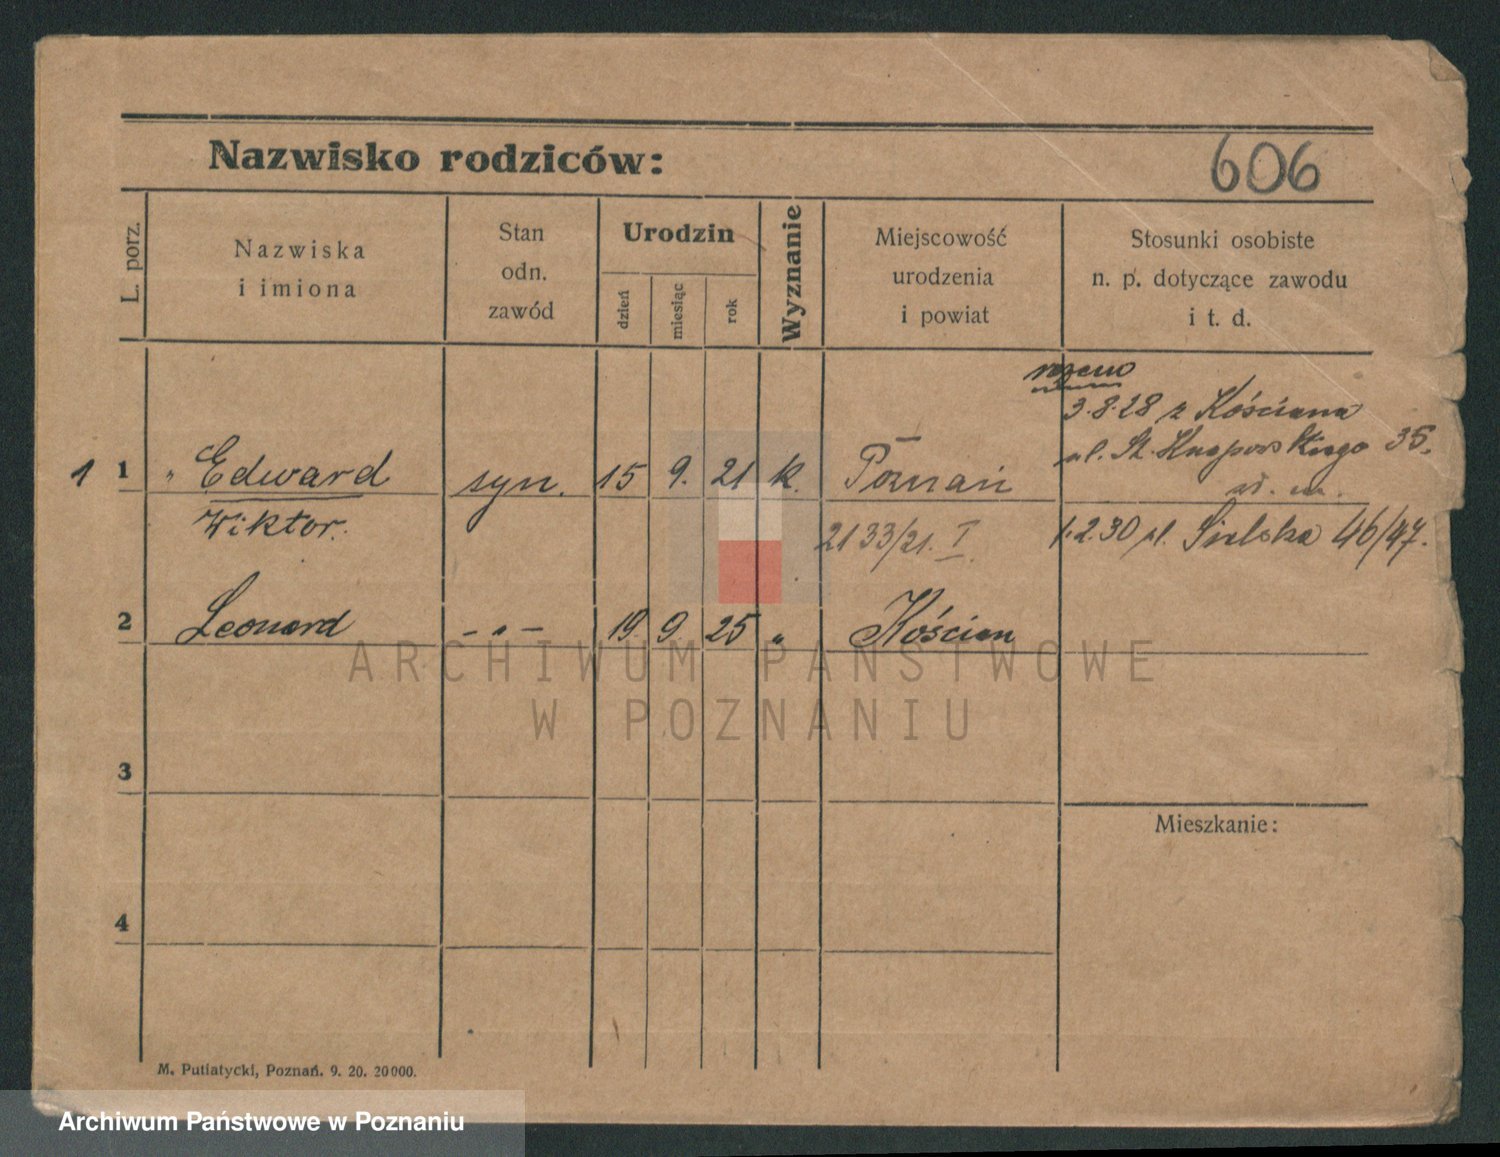 Nazwisko rodziców:
606
L. porz.
Nazwiska
i imiona
Stan
odn.
zawód
Urodzin
dzień
miesiąc
rok
Wyznanie
Miejscowość
urodzenia
i powiat
Stosunki osobiste
n. p. dotyczące zawodu
i t. d.
3.8.28 z Kościana
ul. St. 35.
1 1 " Edward syn. 15 9. 21 k. Poznań
Wiktor. 2133/21. I 1.2.30 ul. Sielska 46/47.
2 Leonard - " - 19 9 25 " Kościan
ARCHIWUM PAŃSTWOWE
W POZNANIU
3
Mieszkanie:
4
M. Putiatycki, Poznań. 9. 20. 20000.
Archiwum Państwowe w Poznaniu